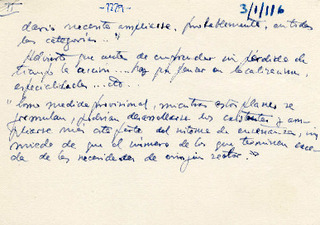 II -2221- 3/1/116
dario necesita ampliarse, probablemente, en todas
las categorías..."
Advierte que antes de emprender sin pérdida de
tiempo la acción... hay que pensar en localización,
especialidades... etc..
"Como medida provisional, mientras estos planes se
formulan, podrían desarrollarse los y am-
pliarse más esta parte del sistema de enseñanza, sin
miedo de que el número de los que terminen exce-
da de las necesidades de ningún sector."